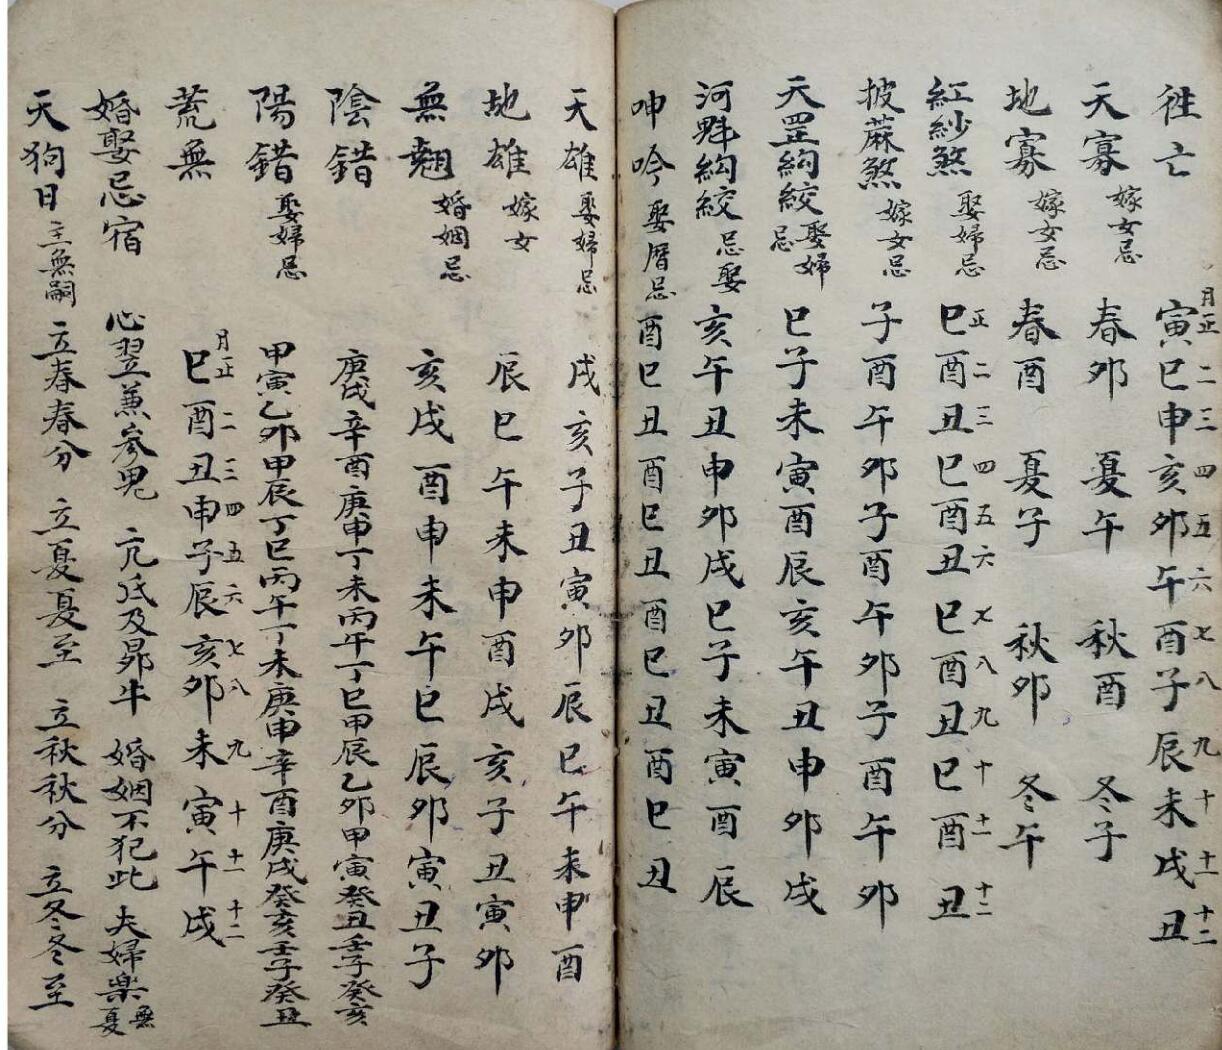 徃亡 月正二三四五六七八九十十一十二 寅巳申亥卯午酉子辰未戌丑
天寡 嫁女忌 春卯 夏午 秋酉 冬子
地寡 嫁女忌 春酉 夏子 秋卯 冬午
紅紗煞 娶婦忌 正二三四五六七八九十十一十二 巳酉丑巳酉丑巳酉丑巳酉丑
披蔴煞 嫁女忌 子酉午卯子酉午卯子酉午卯
天罡絢絞 娶婦忌 巳子未寅酉辰亥午丑申卯戌
河魁絢絞 忌娶 亥午丑申卯戌巳子未寅酉辰
呻吟 娶曆忌 酉巳丑酉巳丑酉巳丑酉巳丑
天雄 娶婦忌 戌亥子丑寅卯辰巳午未申酉
地雄 嫁女 辰巳午未申酉戌亥子丑寅卯
無翹 婚姻忌 亥戌酉申未午巳辰卯寅丑子
陰錯 庚戌辛酉庚申丁未丙午丁巳甲辰乙卯甲寅癸丑壬子癸亥
陽錯 娶婦忌 甲寅乙卯甲辰丁巳丙午丁未庚申辛酉庚戌癸亥壬子癸丑
荒無 月正二三四五六七八九十十一十二 巳酉丑申子辰亥卯未寅午戌
婚娶忌宿 心翌兼參鬼 亢氐及昴牛 婚姻不犯此 夫婦樂無憂
天狗日 主無嗣 立春春分 立夏夏至 立秋秋分 立冬冬至